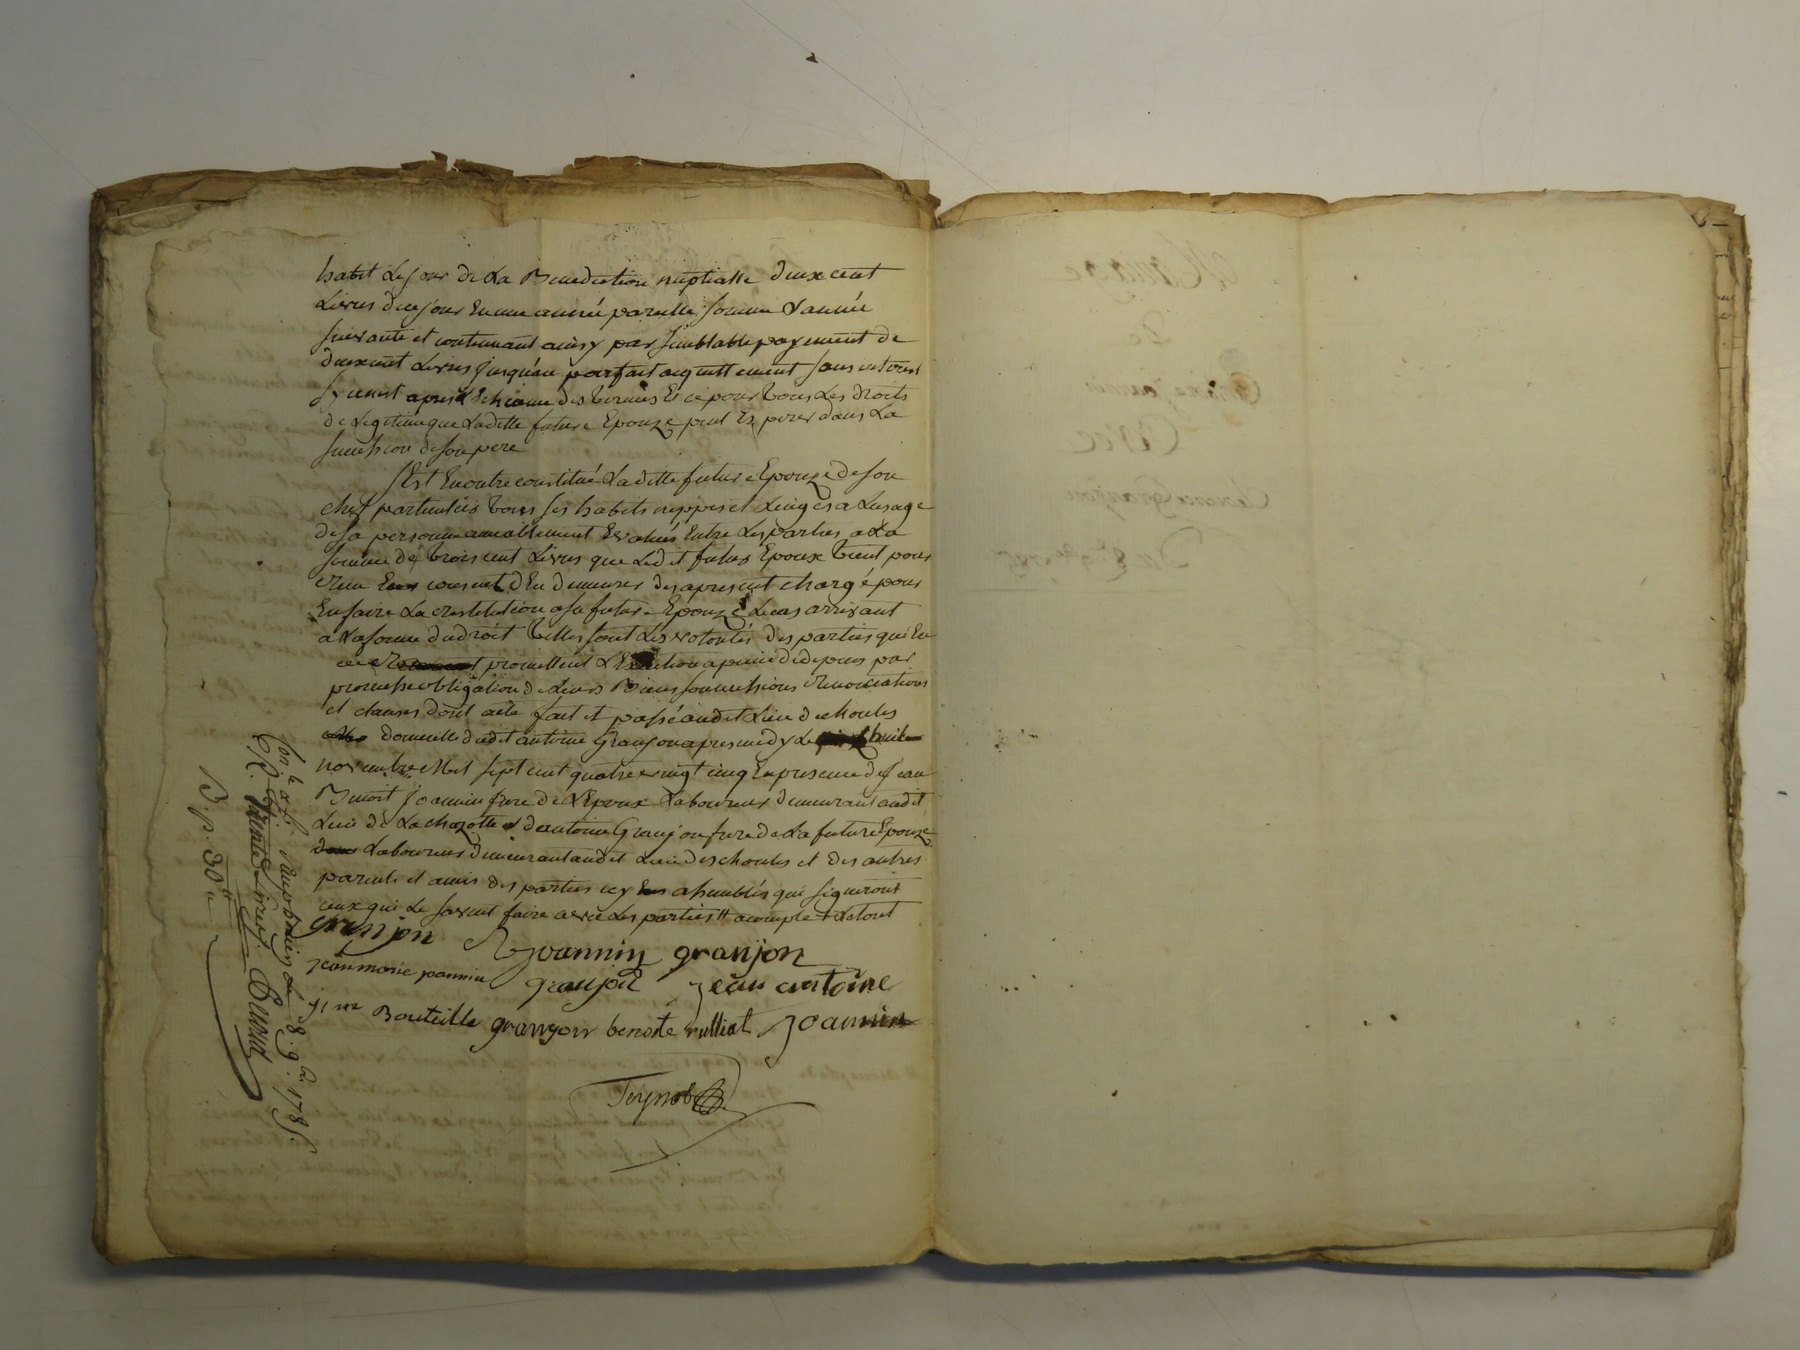 habit Le jour de La Benediction nuptialle deux cent
Livres dicejour en une année pareille somme L'année
suivante et continuant ainsy par semblable payement de
deux cent Livres jusqu'au parfait acquittement sans interest
si cenest apres L'echeance des termes Et ce pour tous Les droits
de Legitime que Laditte future Epouze peut Esperer dans La
succession de son pere
S'est En outre constitué Laditte future Epouze de son
chef particulier tous ses habits nippes et Linges a Lusage
de sa personne amiablement Evalués Entre Les parties a La
somme de trois cent Livres que Ledit futur Epoux tient pour
consent d'En demeurer des apresent chargé pour
En faire La restitution a sa future Epouze Le cas arrivant
a La forme du droit telles sont Les volontés des parties qui En
promettent L'Execution a peine de depens par
promesse obligation de Leurs Biens soumissions renonciations
et clauses dont acte fait et passé audit Lieu de choules
domicille dudit antoine Granjon apres midy Le huit
novembre Mil sept cent quatre vingt cinq En presence de Jean
Benoit Joannin frere de L'Epoux Laboureur demeurant audit
Lieu de La chazotte et d'antoine Granjon frere de La future Epouze
Laboureur demeurant audit Lieu des choules et des autres
parents et amis des parties icy assemblés qui signeront
ceux qui Le savent faire avec Les parties
granjon Joannin granjon
jean marie joannin granjon jean antoine
Bouteille granjon benoite rulliat Joannin
Teynot
8. 9bre 1785.
Mariage
De
Joannin
Avec
Granjon